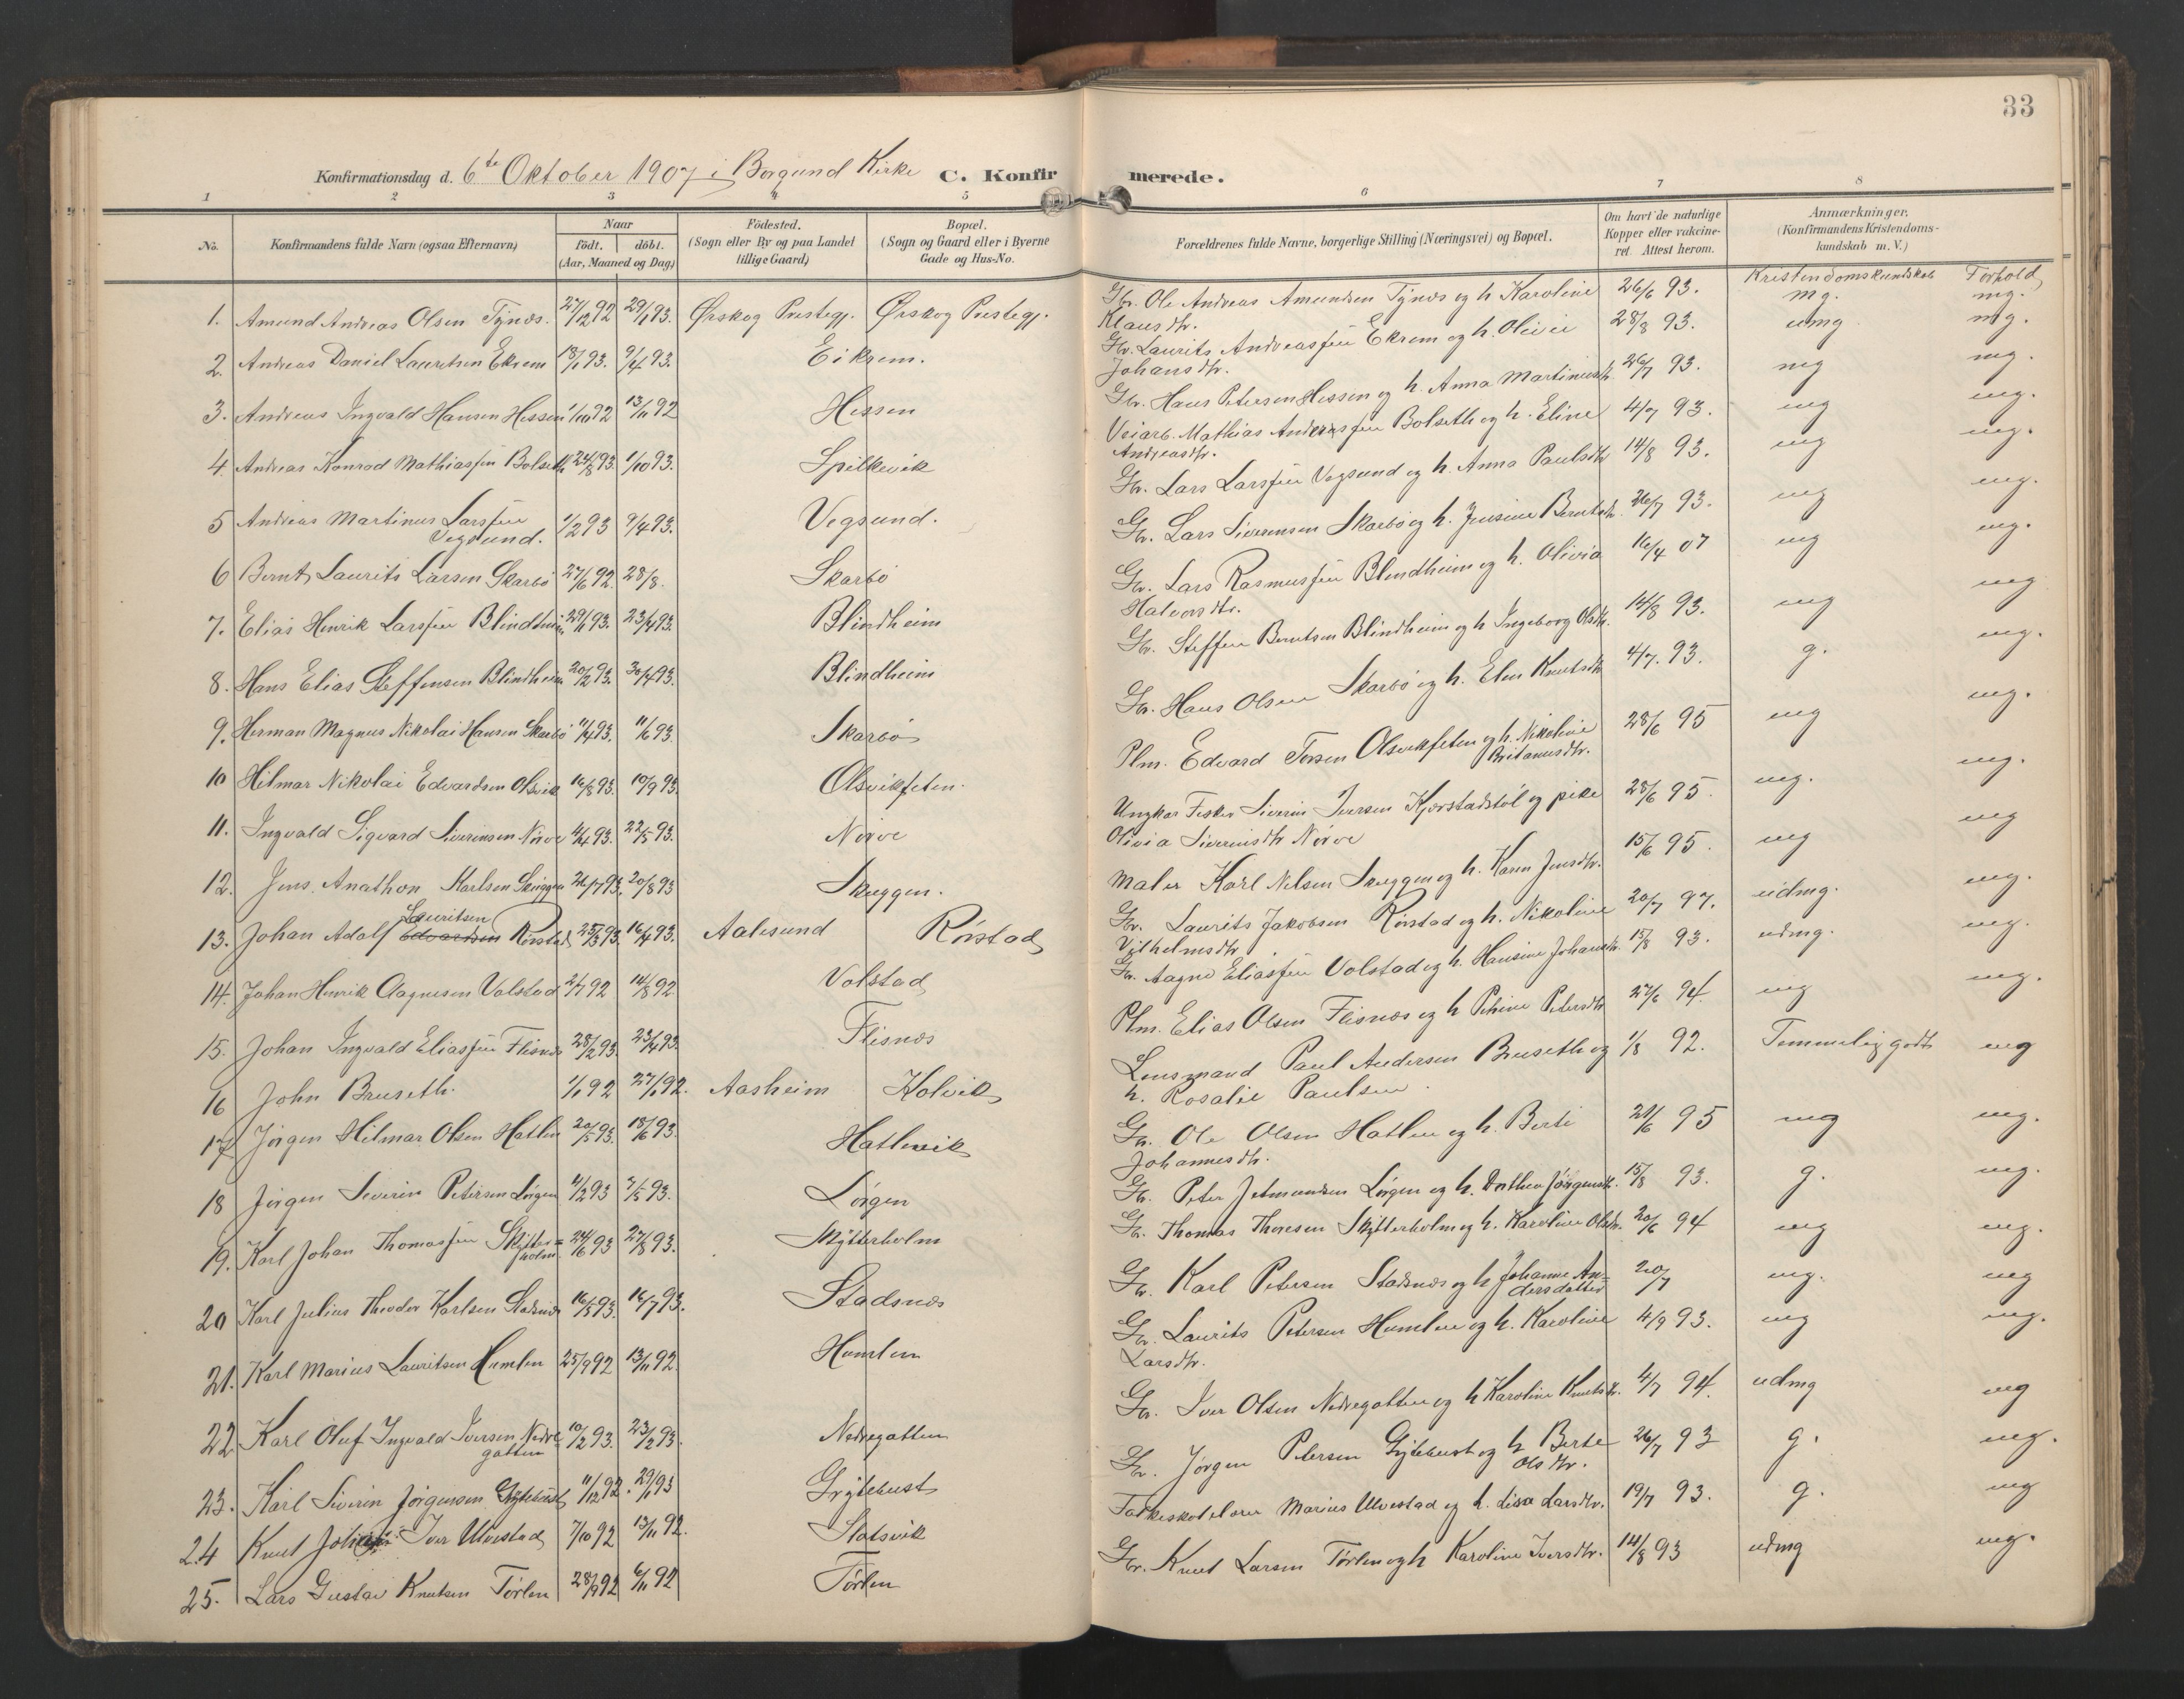 33
Konfirmationsdag d. 6te Oktober 1907 i Borgund Kirke C. Konfirmerede.
1 2 3 4 5 6 7 8
No. Konfirmandens fulde Navn (ogsaa Efternavn) Naar født. døbt. (Aar, Maaned og Dag) Fødested. (Sogn eller By og paa Landet tillige Gaard) Bopæl. (Sogn og Gaard eller i Byerne Gade og Hus-No.) Forældrenes fulde Navne, borgerlige Stilling (Næringsvei) og Bopæl. Om havt de naturlige Kopper eller vakcineret. Attest herom. Anmærkninger. (Konfirmandens Kristendomskundskab m. V.)
Kristendomskundskab Forhold
1. Amund Andreas Olsen Tynes. 27/12 92 29/1 93. Ørskog Prestegj. Ørskog Prestegj. Gbr. Ole Andreas Amundsen Tynes og h. Karoline 26/6 93. mg. mg.
Klausdtr.
2. Andreas Daniel Lauritsen Ekrem 18/1 93. 9/4 93. Eikrem. Gbr. Laurits Andreassen Ekrem og h. Olivie 28/8 93. udmg mg.
Johansdtr.
3. Andreas Ingvald Hansen Hessen 1/10 92 13/11 92 Hessen Gbr. Hans Petersen Hessen og h. Anna Martinusdtr. 26/7 93. mg mg.
4. Andreas Konrad Mathiassen Bolseth 24/8 93. 1/10 93. Spilkevik Veiarb. Mathias Andreassen Bolseth og h. Eline 4/7 93. mg mg.
Andreasdtr.
5 Andreas Martinus Larssen 1/2 93 9/4 93. Vegsund. Gbr. Lars Larssen Vegsund og h. Anna Paulsdtr 14/8 93. mg mg.
Vegsund.
6 Bernt Laurits Larsen Skarbø 27/6 92. 28/8. Skarbø Gbr. Lars Siversen Skarbø og h. Jensine Berntsdtr. 26/7 93. mg mg.
7. Elias Henrik Larssen Blindheim 29/1 93. 23/4 93. Blindheim Gbr. Lars Rasmussen Blindheim og h. Olivia 16/4 07 mg mg.
Halvorsdtr.
8. Hans Elias Steffensen Blindheim 20/2 93. 30/4 93. Blindheim Gbr. Steffen Berntsen Blindheim og h. Ingeborg Olsdtr. 14/8 93. mg mg
9. Herman Magnus Nikolai Hansen Skarbø 11/4 93. 11/6 93. Skarbø Gbr. Hans Olsen Skarbø og h. Elen Knutsdtr 4/7. 93. g. mg.
10 Hilmar Nikolai Edvardsen Olsvik 16/8 93. 10/9 93. Olsvikfeten. Plm. Edvard Torsen Olsvikfeten og h. Nikoline 28/6 95 mg mg.
Britanusdtr.
11. Ingvald Sigvard Siverinsen Nørve 4/4 93. 22/5 93. Nørve Ungkar Fisker Siverin Iversen Kjerstadstøl og pike 28/6 95. mg. mg.
Olivia Siverinsdtr Nørve
12. Jens Anathon Karlsen Skuggen 26/7 93. 20/8 93 Skuggen. Maler Karl Nelsen Skuggen og h. Karen Jensdtr. 15/6 95. mg mg
13. Johan Adolf Edvardsen Lauritsen Rørstad 25/3 93. 16/4 93. Aalesund Rørstad Gbr. Laurits Jakobsen Rørstad og h. Nikoline 20/7 97. udmg. mg.
Vilhelmsdtr
14. Johan Henrik Aagnesen Volstad 2/7 92 14/8 92 Volstad Gbr. Aagne Eliassen Volstad og h. Hansine Johansdtr. 15/8 93. udmg. mg.
15. Johan Ingvald Eliassen Flisnes 28/2 93. 23/4 93. Flisnes Plm. Elias Olsen Flisnes og h Petrine Petersdtr 27/6 94. mg mg.
16 John Bruseth. 1/1 92 27/1 92. Aasheim Kolvik Lensmand Paul Andersen Bruseth og 1/8 92. Temmelig godt mg
h. Rosalie Paulsen.
17 Jørgen Hilmar Olsen Hatlen 20/5 93. 18/6 93. Hatlevik Gbr. Ole Olsen Hatlen og h. Berte 21/6 95 mg mg.
Johannesdtr.
18 Jørgen Severin Petersen Lørgen 4/2 93 7/5 93. Lørgen Gbr. Peter Jetmundsen Lørgen og h. Dorthea Jørgensdtr. 15/8 93. g. mg.
19. Karl Johan Thomassen Skytter= 24/6 93 27/8 93. Skytterholm Gbr. Thomas Thoresen Skytterholm og h. Karoline Olsdtr. 20/6 94 mg mg.
holm.
20 Karl Julius Theodor Karlsen Stadsnes 16/5 93. 16/7 93. Stadsnes Gbr. Karl Petersen Stadsnes og h Johanne An= 20/7 mg. mg
dersdatter
21. Karl Marius Lauritsen Humlen 25/9 92 13/11 92. Humlen Gbr. Laurits Petersen Humlen og h. Karoline 4/9 93. mg mg.
Larsdtr.
22 Karl Oluf Ingvald Iversen Nedre= 10/2 93. 23/2 93. Nedregotten Gbr. Iver Olsen Nedregotten og h Karoline Knutsdtr. 4/7 94. udmg mg
gotten
23. Karl Siverin Jørgensen Grytebust 11/12 92. 29/1 93 Grytebust Gbr. Jørgen Petersen Grytebust og h Berte 26/7 93 g. mg.
Olsdtr.
24 Knut Johan Iver Ulvestad 7/10 92 13/11 92. Slatsvik Folkeskolelærer Marius Ulvestad og h. Lisa Larsdtr. 19/7 93. g. mg
25. Lars Gustav Knutsen Tørlen 28/9 92 6/11 92 Tørlen Gbr. Knut Larsen Tørlen og h Karoline Iversdtr. 14/8 93 udmg mg.